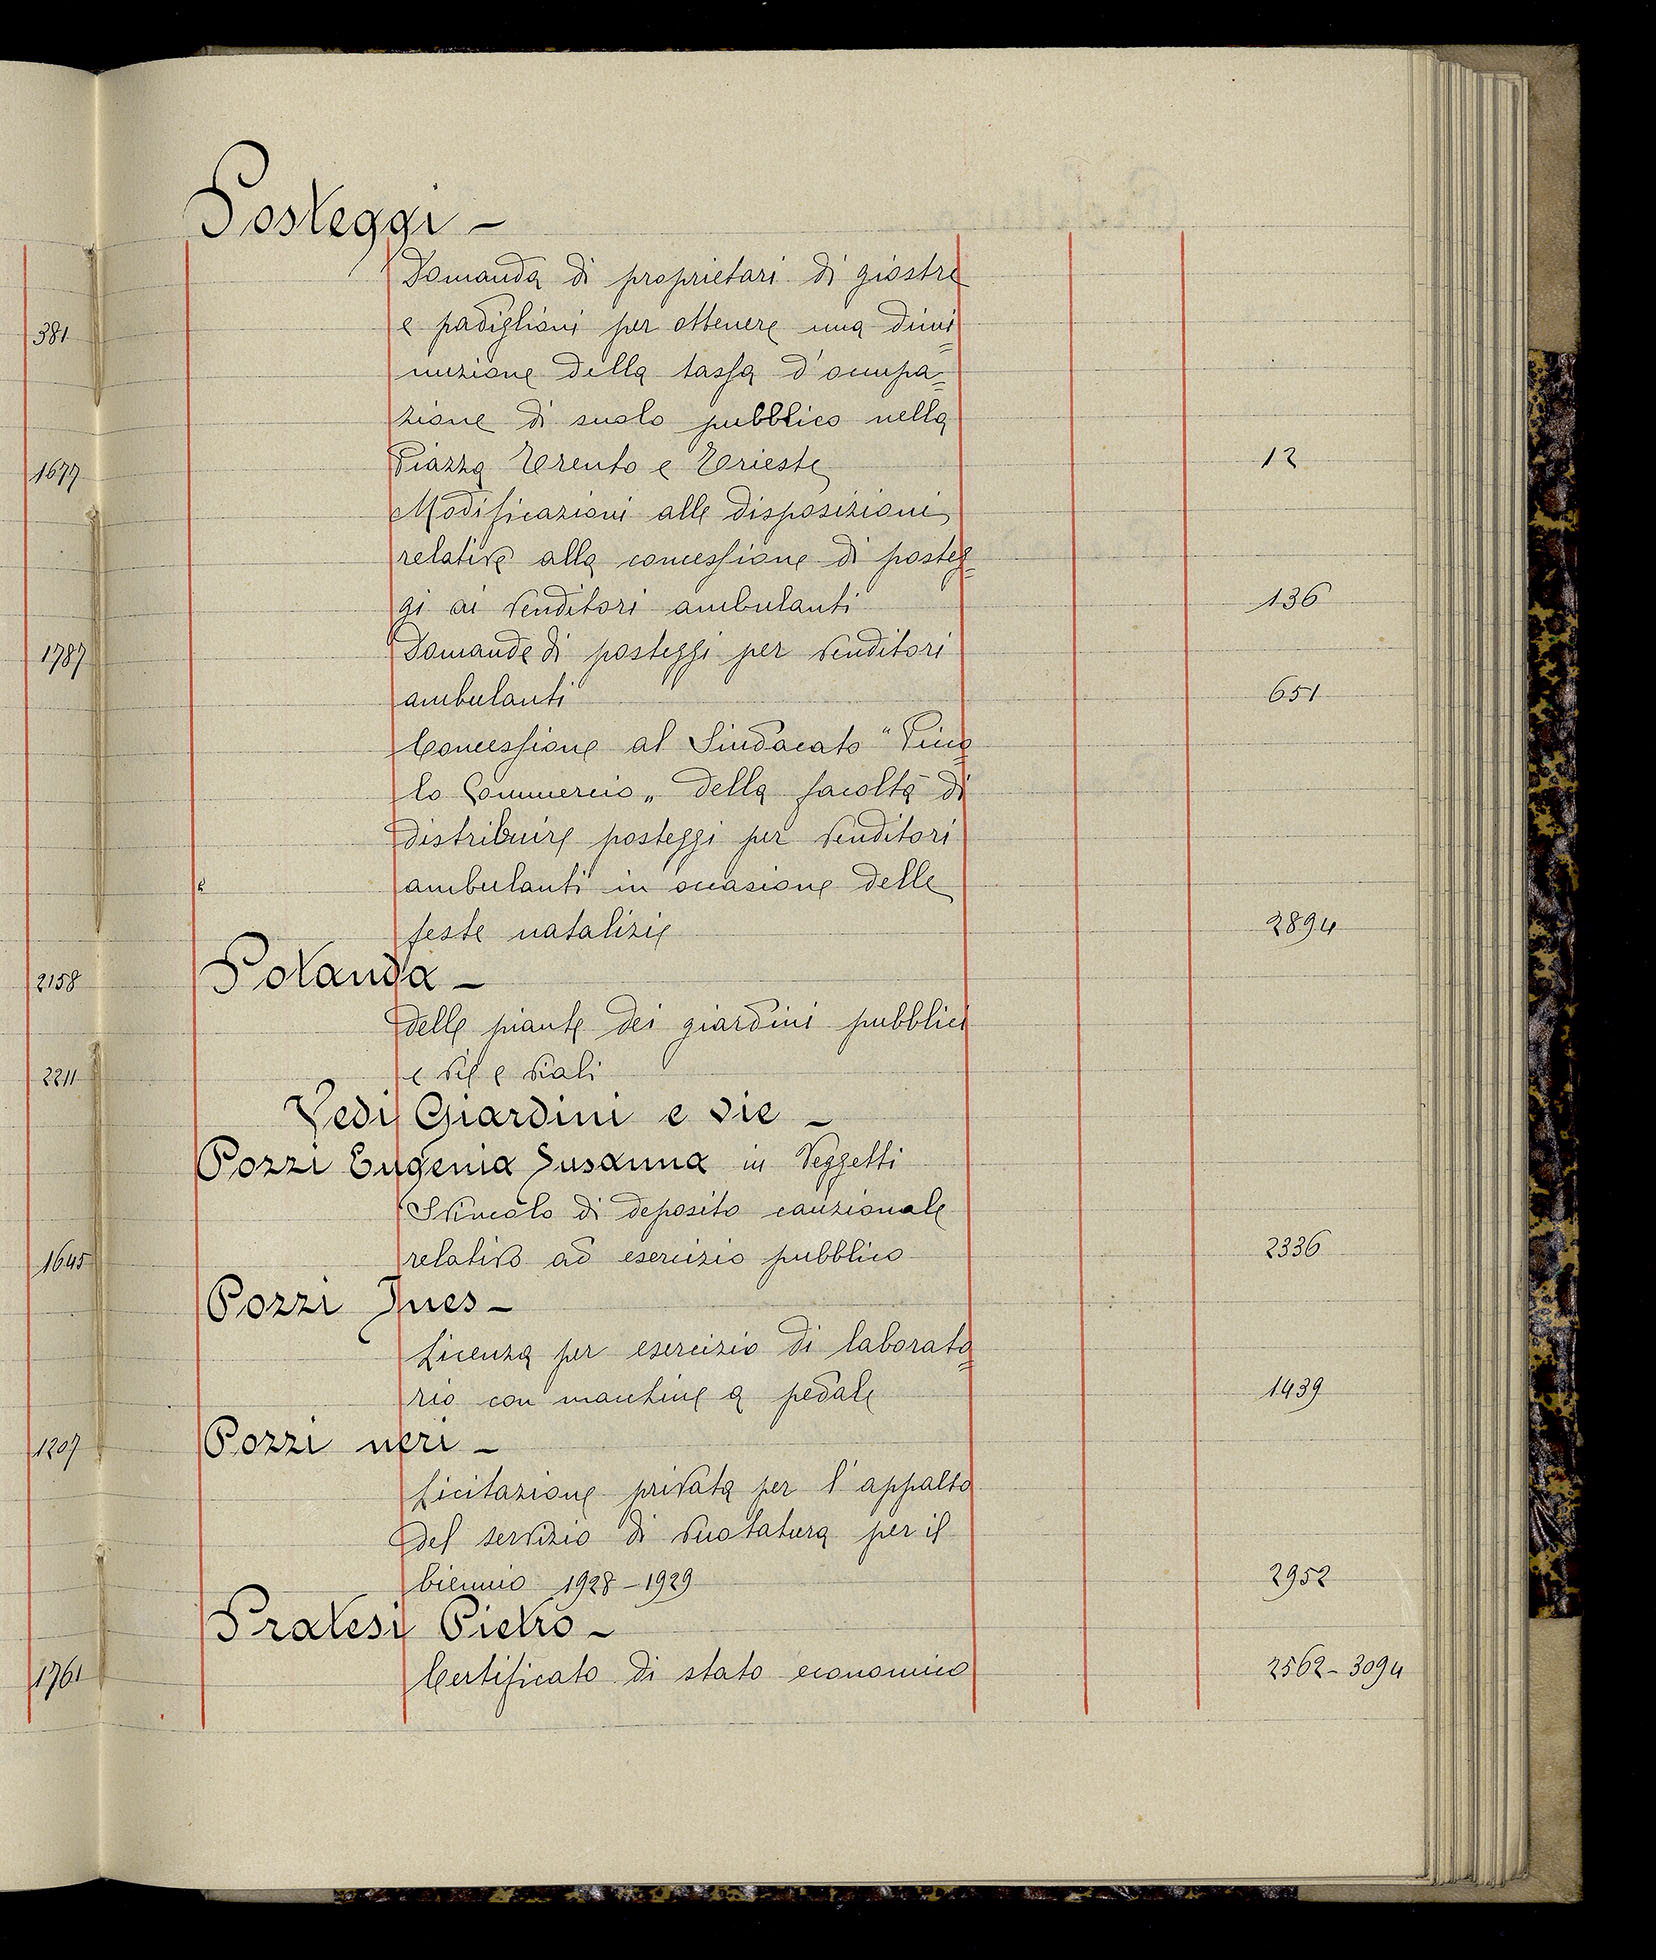 Posteggi -
Domanda di proprietari di giostre
e padiglioni per ottenere una dimi=
nuzione della tassa d'occupa=
zione di suolo pubblico nella
Piazza Trento e Trieste 12
Modificazioni alle disposizioni
relative alla concessione di posteg=
gi ai venditori ambulanti 136
Domande di posteggi per venditori
ambulanti 651
Concessione al Sindacato "Picco=
lo Commercio„ della facoltà di
distribuire posteggi per venditori
ambulanti in occasione delle
feste natalizie 2894
Potanda -
delle piante dei giardini pubblici
e vie e viali
Vedi Giardini e vie -
Pozzi Eugenia Susanna in Veggetti
Svincolo di deposito cauzionale
relativo ad esercizio pubblico 2336
Pozzi Ines -
Licenza per esercizio di laborato=
rio con macchine a pedale 1439
Pozzi neri -
Licitazione privata per l'appalto
del servizio di vuotatura per il
biennio 1928-1929 2952
Pratesi Pietro -
Certificato di stato economico 2562-3094
381
1677
1787
2158
2211
1645
1207
1761